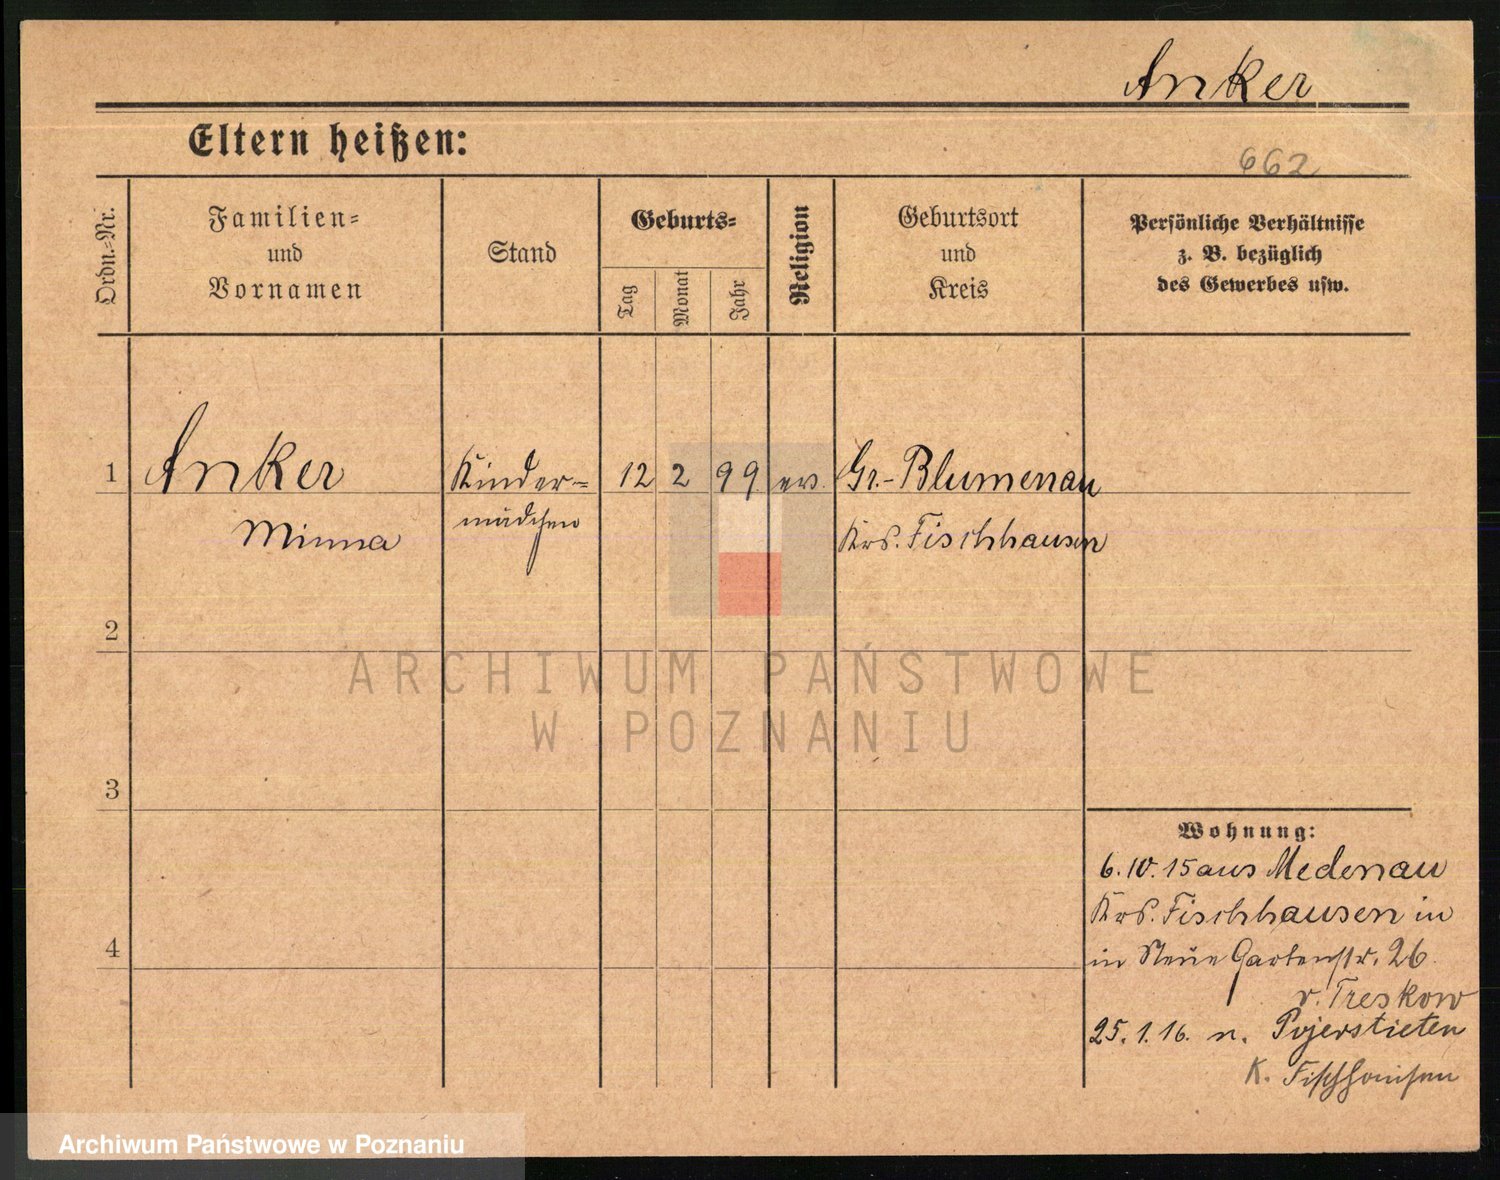 Anker
Eltern heißen:
662
Ordn.=Nr.
Familien=
und
Vornamen
Stand
Geburts=
Tag
Monat
Jahr
Religion
Geburtsort
und
Kreis
Persönliche Verhältnisse
z. B. bezüglich
des Gewerbes usw.
1 Anker Kinder= 12 2 99 ev. Gr.-Blumenau
Minna mädchen Krs. Fischhausen
2
ARCHIWUM PAŃSTWOWE
W POZNANIU
3
Wohnung:
6.10.15 aus Medenau
Krs. Fischhausen in
4
in Neue Gartenstr. 26
v. Treskow
25.1.16. n. Pojerstieten
K. Fischhausen
Archiwum Państwowe w Poznaniu